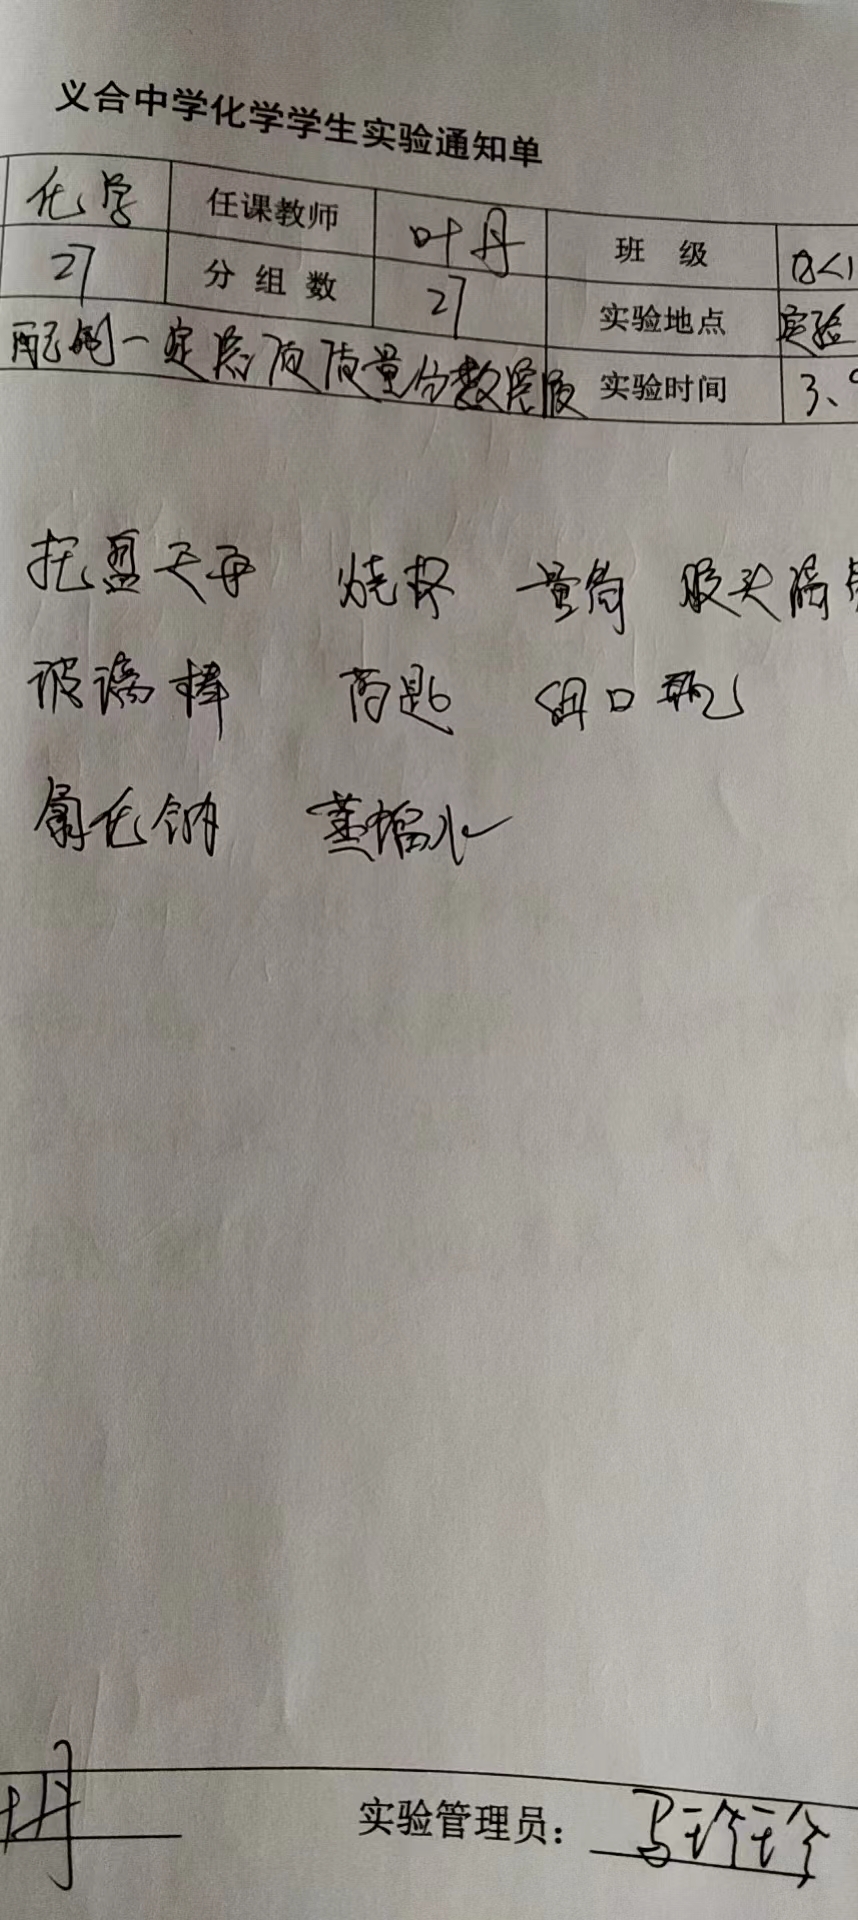 义合中学化学学生实验通知单
化学 任课教师 叶丹 班 级
27 分组数 27 实验地点 实验
配制一定溶质质量分数溶液 实验时间 3.
托盘天平 烧杯 量筒 胶头滴
玻璃棒 药匙 细口瓶
氯化钠 蒸馏水
叶丹 实验管理员: 马珍珍